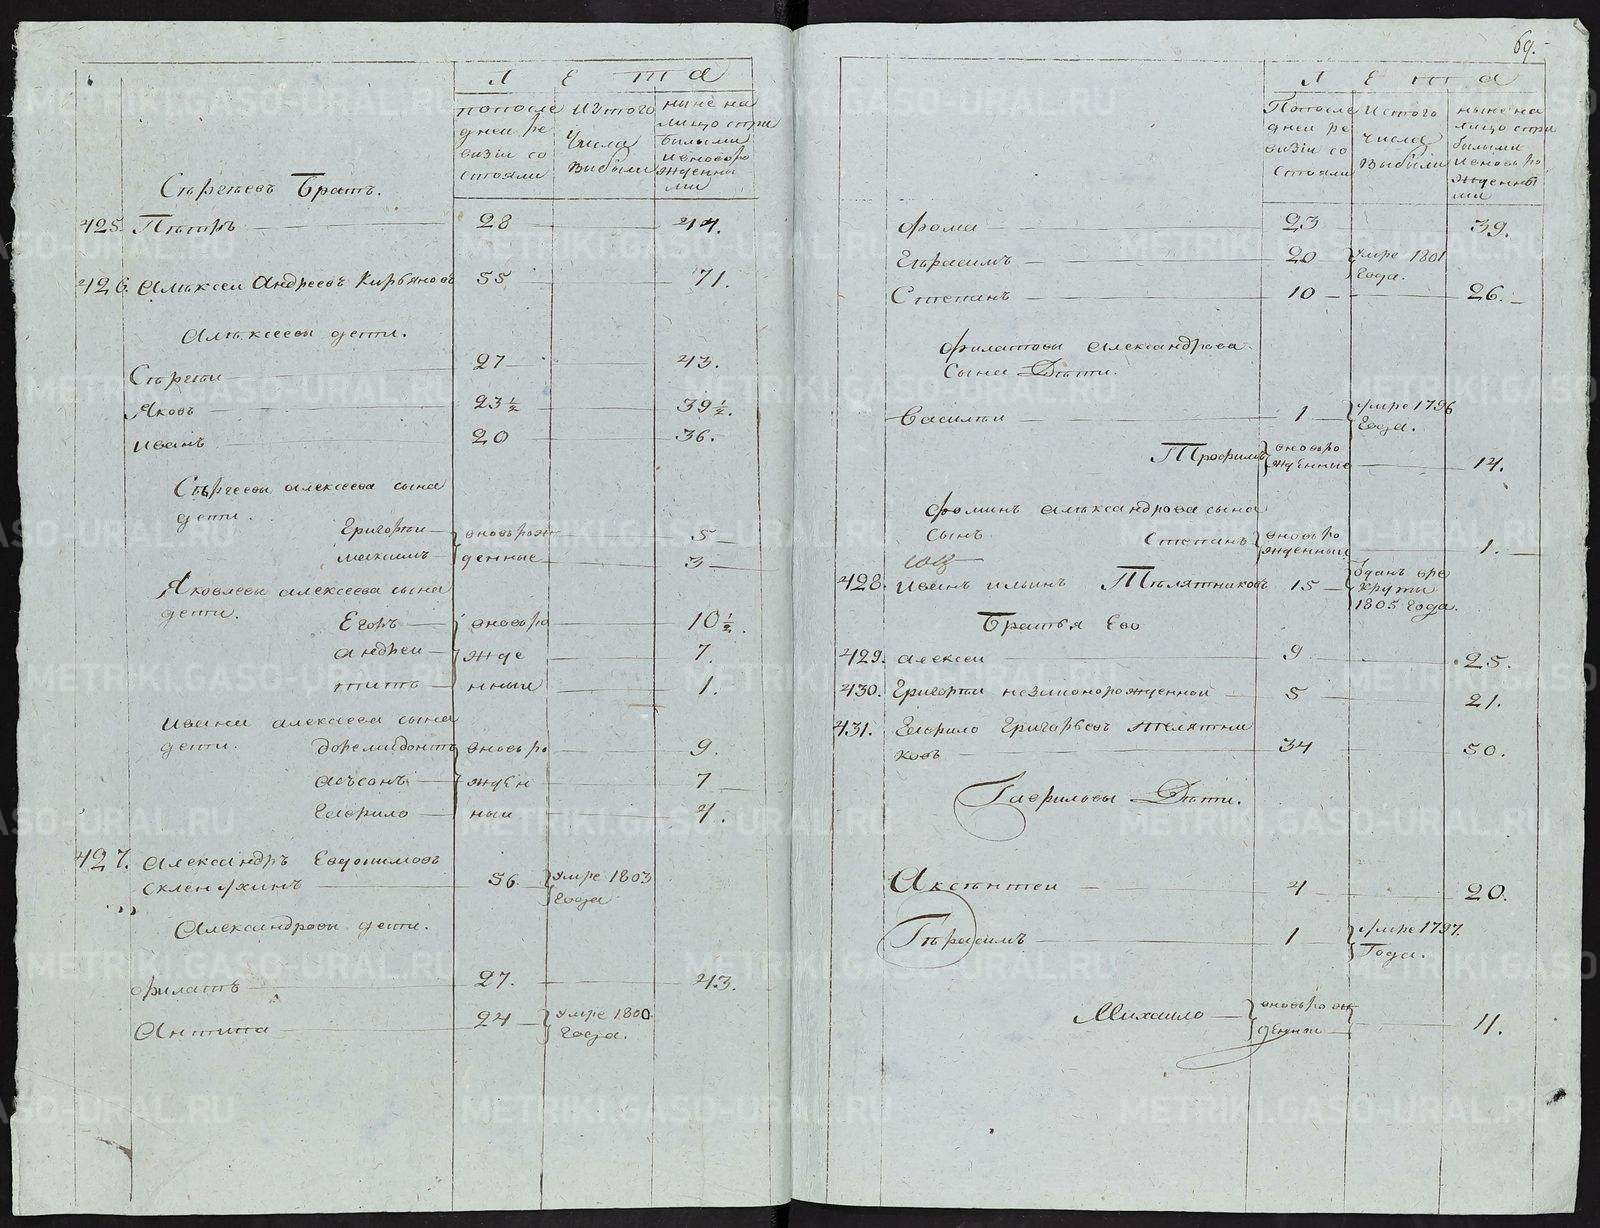 Л Е Т А
попосле дней ре визiи со стояли
изтого числа выбыли
ныне на лицо спри былыми и вноворо жденны ми
Сергеевъ Братъ.
425. Петръ 28 44.
426. Алексеи Андреевъ Кирьяновъ 55 71.
Алексеевы дети.
Сергеи 27 43.
Яковъ 23½ 39½.
Иванъ 20 36.
Сергеевы алексеева сына
дети.
Григореи вновьрож 5
максимъ денные 3
Яковлевы алексеева сына
дети.
Егоръ вновьро 10½.
андреи жде 7.
титъ нныи 1.
Ивана алексеева сына
дети.
доремидонтъ вновьро 9.
аѳсонъ жден 7
Гаврило ныи 4.
427. Александръ Евдокимовъ
скленухинъ 56 умре 1803 Года
Александровы дети.
филатъ 27. 43.
Антипа 24 умре 1800 Года.
69.
Л Е Т А
Попосле дней ре визiи со стояли
Истого числа выбыли
ныне на лицо спри былыми и вновьро жденны ми
фома 23 39.
Герасимъ 20 умре 1801 Года.
Степанъ 10 26.
филатовы александрова
сына Дети.
Василеи 1 умре 1796 Года.
Трофимъ вновьро жденные 14.
фоминъ александрова сына
сынъ Степанъ вновьро жденныи 1.
428. Иванъ ильинъ Телятниковъ 15 зданъ вре круты 1805 Года.
Братья Ево
429. алексеи 9 25.
430. Григореи незаконорожденнои 5 21.
431. Гаврило Григорьевъ телятни
ковъ 34 50.
Гавриловы Дети.
Аксентеи 4 20.
Герасимъ 1 умре 1797. Года.
Михаило вновьрож деннои 11.
METRIKI.GASO-URAL.RU